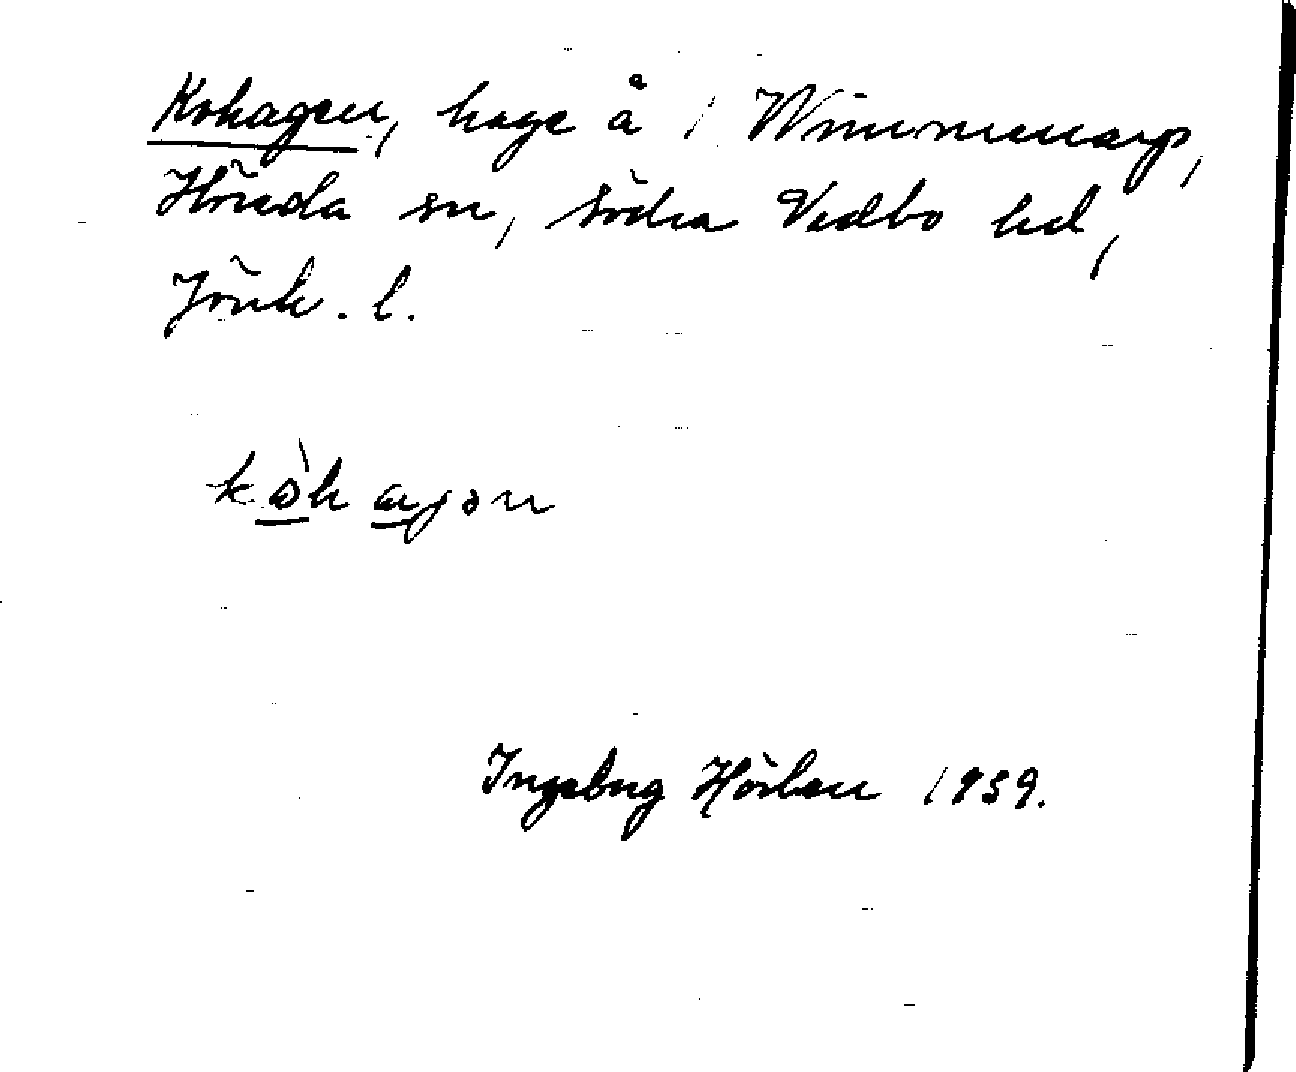 Kohagen, hage å 1 Wimmenarp,
Höreda sn, södra Vedbo hd,
Jönk. l.
kòhagən
Ingeborg Hörlen 1959.